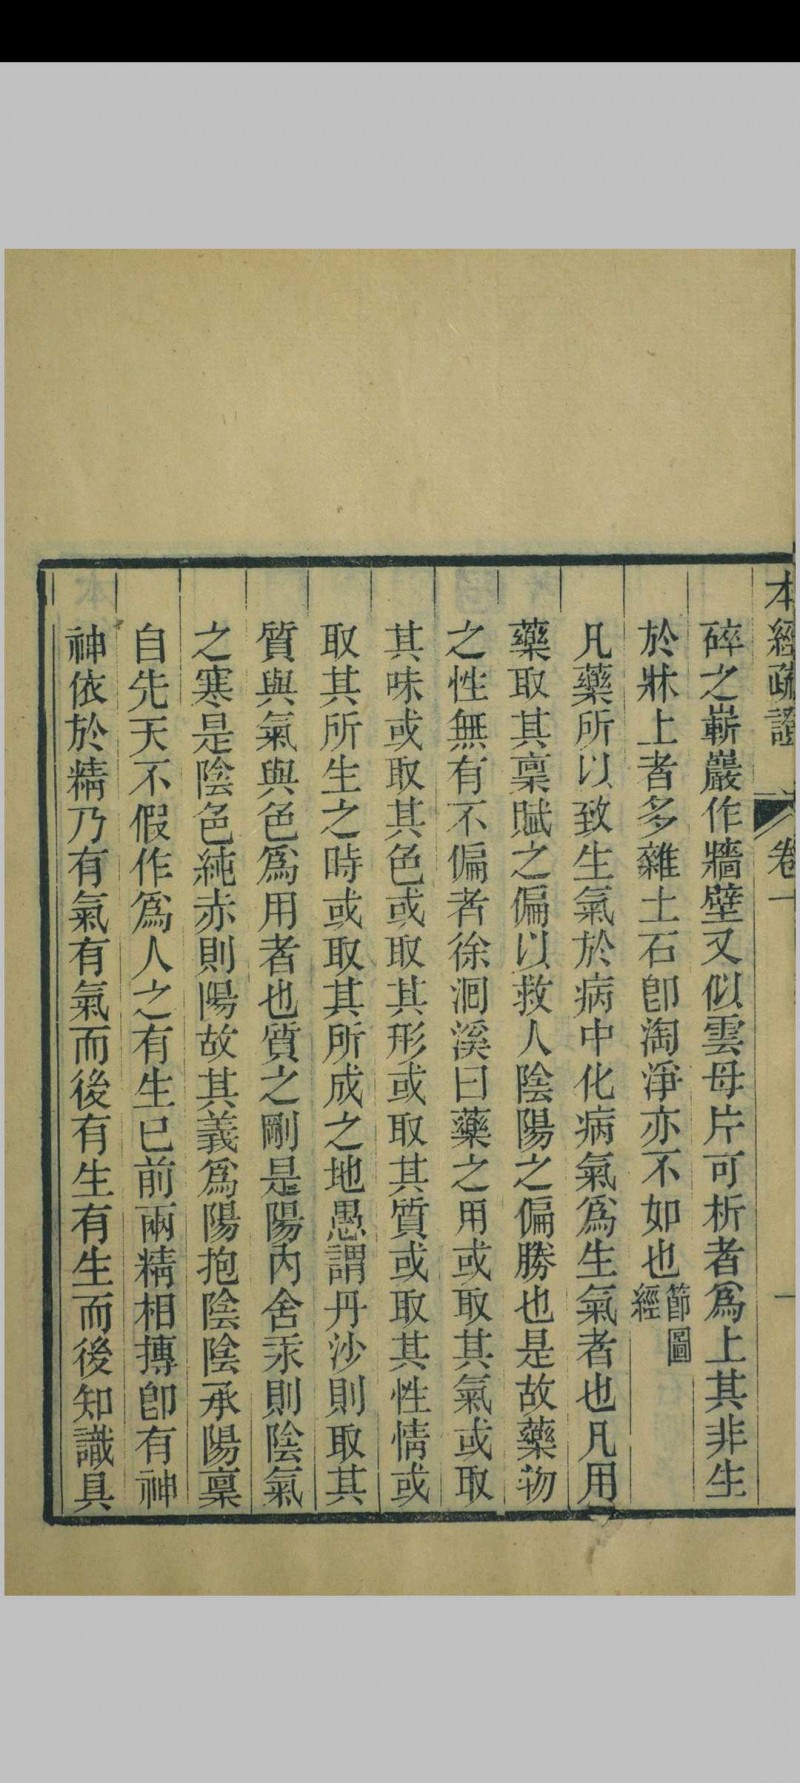 本經疏證
卷一
一
碎之嶄巖作牆壁又似雲母片可析者爲上其非生
於牀上者多雜土石卽淘淨亦不如也節圖經
凡藥所以致生氣於病中化病氣爲生氣者也凡用
藥取其稟賦之偏以救人陰陽之偏勝也是故藥物
之性無有不偏者徐洄溪曰藥之用或取其氣或取
其味或取其色或取其形或取其質或取其性情或
取其所生之時或取其所成之地愚謂丹沙則取其
質與氣與色爲用者也質之剛是陽內含汞則陰氣
之寒是陰色純赤則陽故其義爲陽抱陰陰承陽稟
自先天不假作爲人之有生已前兩精相摶卽有神
神依於精乃有氣有氣而後有生有生而後知識具